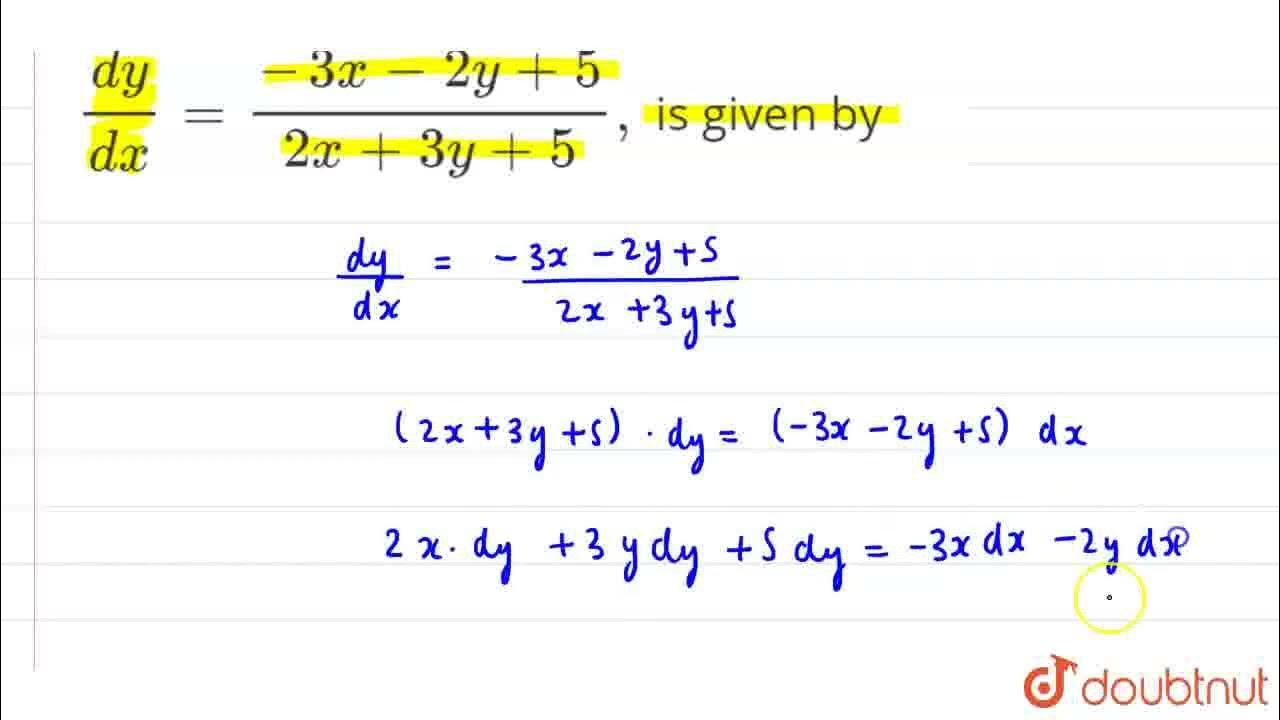 dy/dx = (-3x - 2y + 5)/(2x + 3y + 5), is given by
dy/dx = (-3x - 2y + 5)/(2x + 3y + 5)
(2x + 3y + 5) · dy = (-3x - 2y + 5) dx
2x · dy + 3y dy + 5 dy = -3x dx - 2y dx
doubtnut